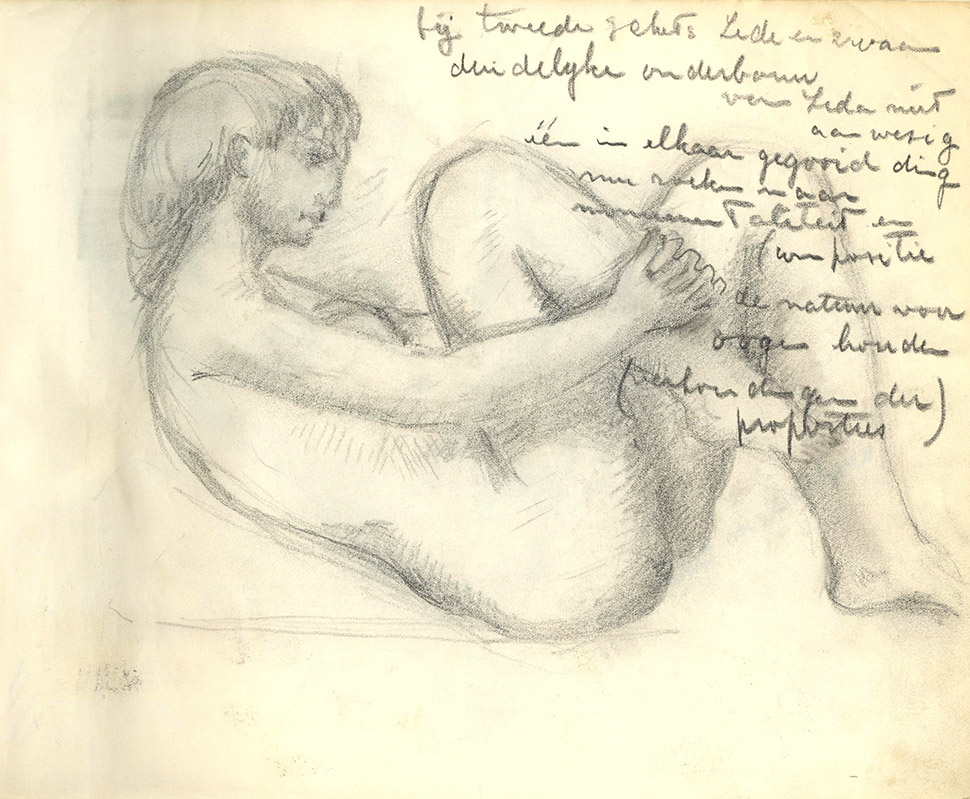 bij tweede schets Leda en zwaan
duidelyke onderbouw
van Leda niet
aanwezig
één in elkaar gegooid ding
nu zoeken naar
monumentaliteit en
compositie
de natuur voor
oogen houden
(verhoudingen der)
proporties